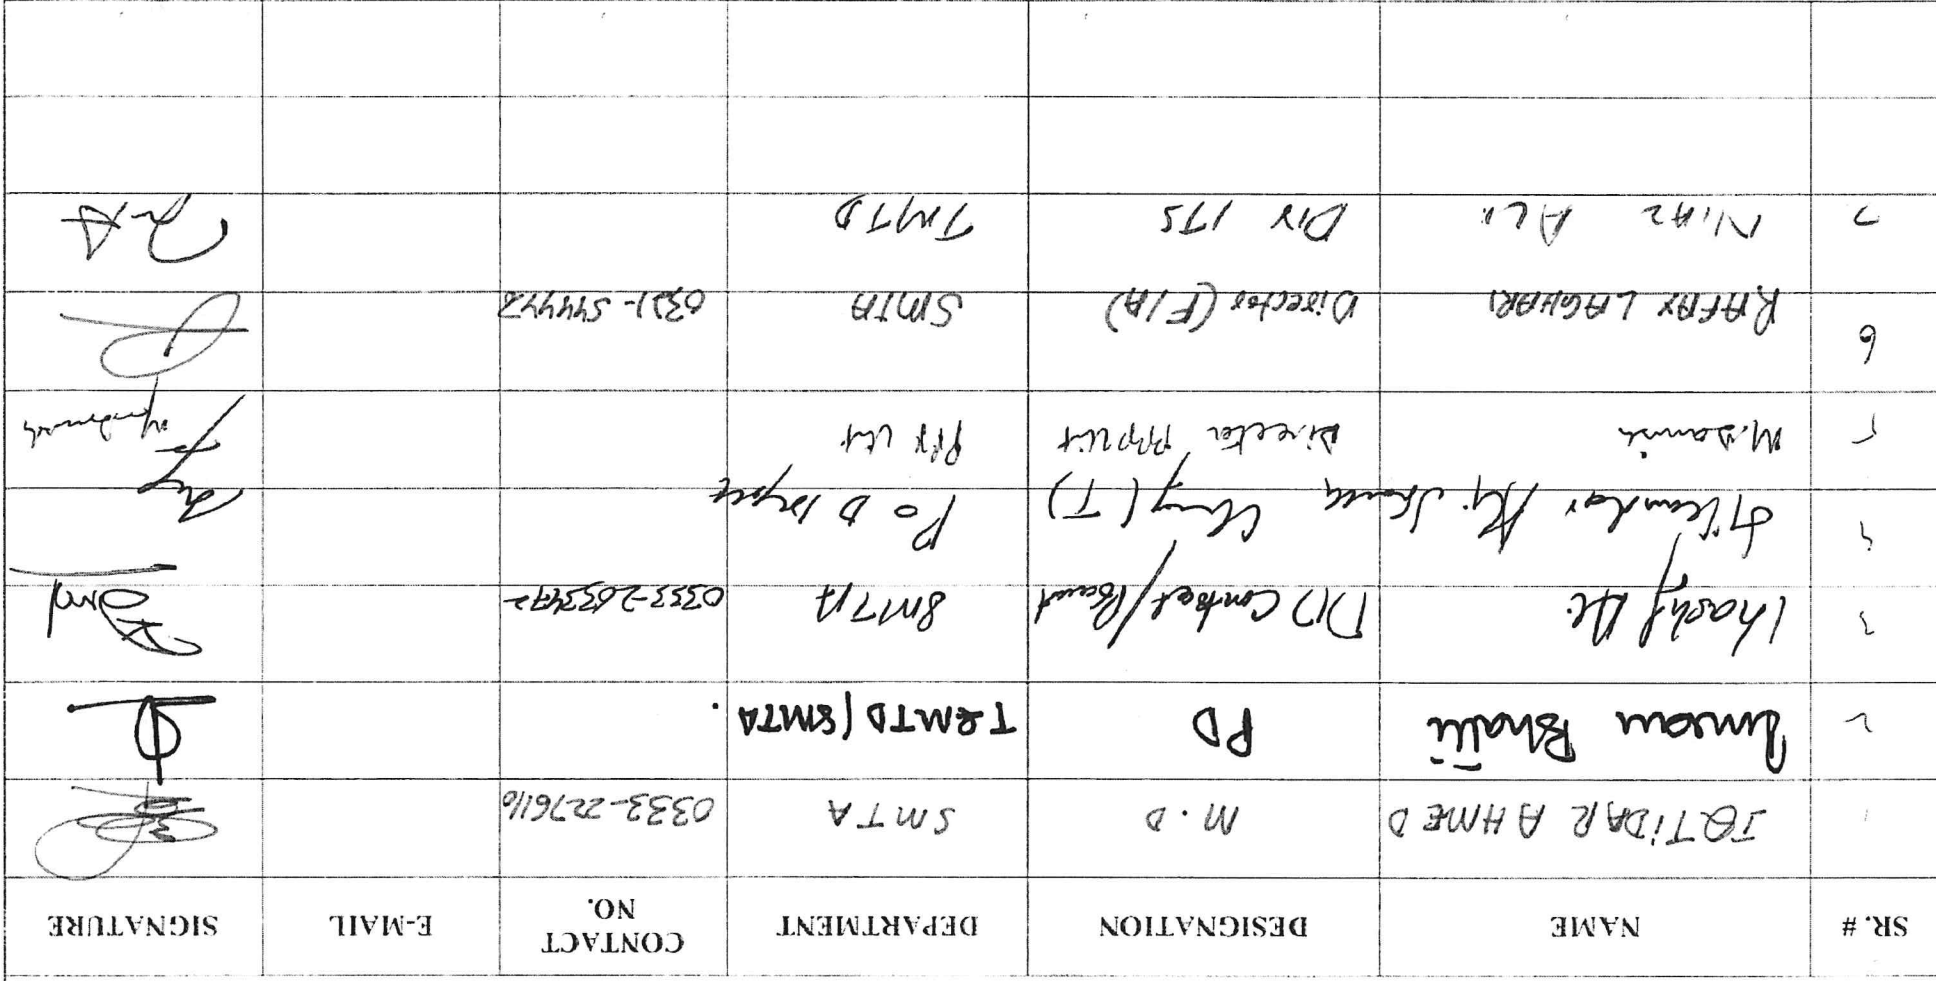 SR. # NAME DESIGNATION DEPARTMENT CONTACT NO. E-MAIL SIGNATURE
1 IQTIDAR AHMED M.D SMTA 0333-2276116
2 Imran Bhatti PD T&MTD/SMTA.
3 Khashif Ali DD Contract/ SMTA 0333-2633472
4 (T) P&D
5 M. Danish Director PPP Unit PPP Unit
6 RAFAY LAGHARI Director (F/A) SMTA
7 NIAZ ALI DIR ITS TMTD